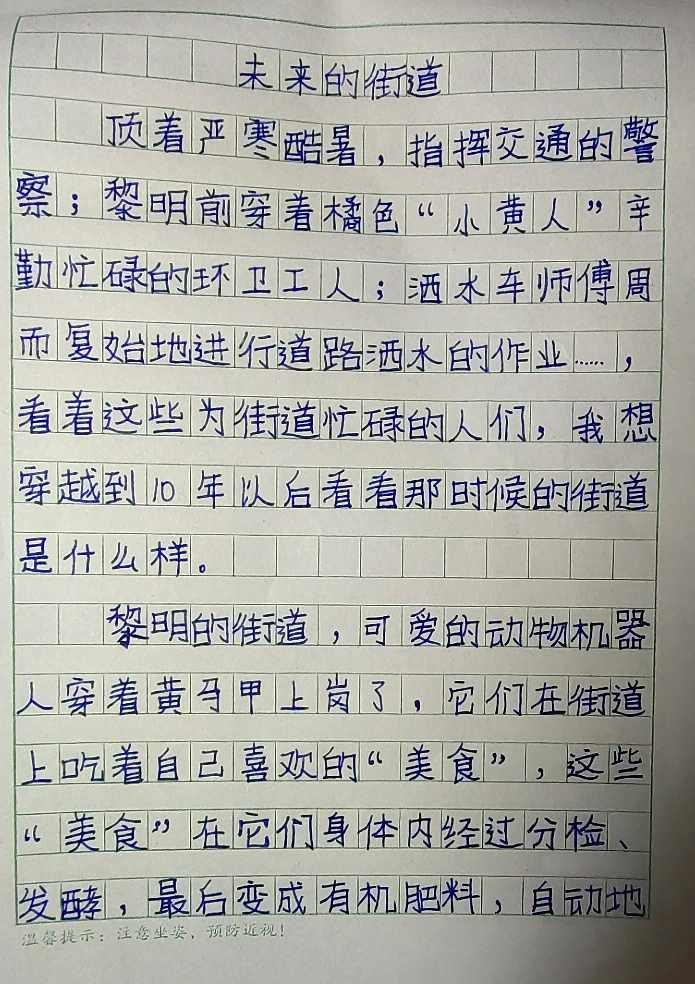 未来的街道
顶着严寒酷暑，指挥交通的警
察；黎明前穿着橘色“小黄人”辛
勤忙碌的环卫工人；洒水车师傅周
而复始地进行道路洒水的作业……，
看着这些为街道忙碌的人们，我想
穿越到10年以后看看那时候的街道
是什么样。
黎明的街道，可爱的动物机器
人穿着黄马甲上岗了，它们在街道
上吃着自己喜欢的“美食”，这些
“美食”在它们身体内经过分检、
发酵，最后变成有机肥料，自动地
温馨提示：注意坐姿，预防近视！